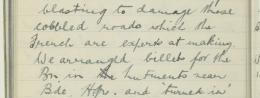 blasting to damage those
cobbled roads which the
French are experts at making.
We arranged billets for the
Bn. in the hutments near
Bde. Hqr. and 'turned in'